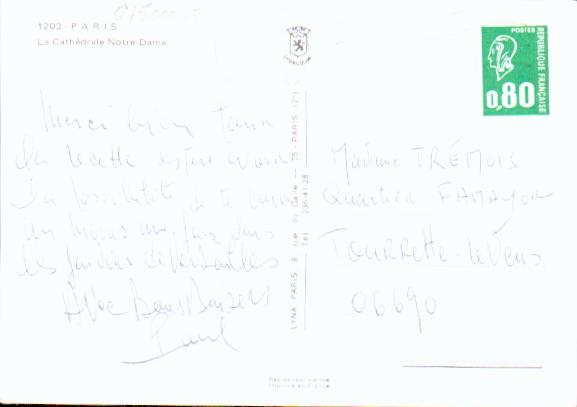 1203 - PARIS
La Cathédrale Notre-Dame.
LYNCOLOR
POSTES
REPUBLIQUE FRANÇAISE
0,80
Merci bien
la recette
la possibilité de te
au moins une fois dans
les jardins de Versailles
Avec Bons Baisers
Paul
LYNA PARIS 8 rue du Caire — 75 - PARIS (2°)
Tél. 236-41-28
Madame TRÉMOIS
Quartier FAMAYOR
TOURRETTE-LeVens
06690
Reproduction interdite
Imprimé en France